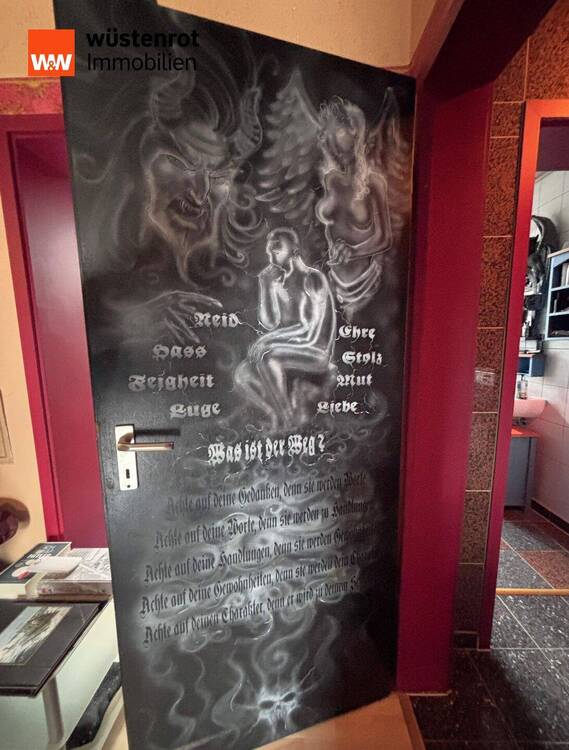 W&W
wüstenrot
Immobilien
Neid
Hass
Feigheit
Luge
Ehre
Stolz
Mut
Liebe
Was ist der Weg?
Achte auf deine Gedanken, denn sie werden Worte
Achte auf deine Worte, denn sie werden zu Handlungen
Achte auf deine Handlungen, denn sie werden
Achte auf deine Gewohnheiten, denn sie werden dein
Achte auf deinen Charakter, denn er wird zu deinem